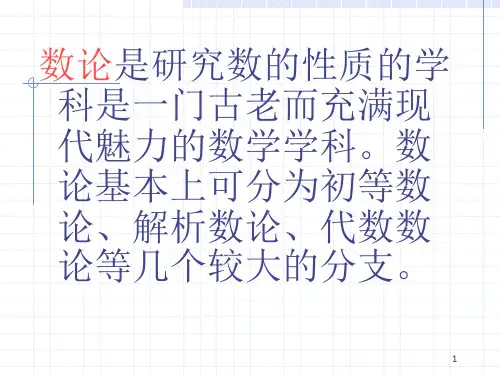 数论是研究数的性质的学
科是一门古老而充满现
代魅力的数学学科。数
论基本上可分为初等数
论、解析数论、代数数
论等几个较大的分支。
1